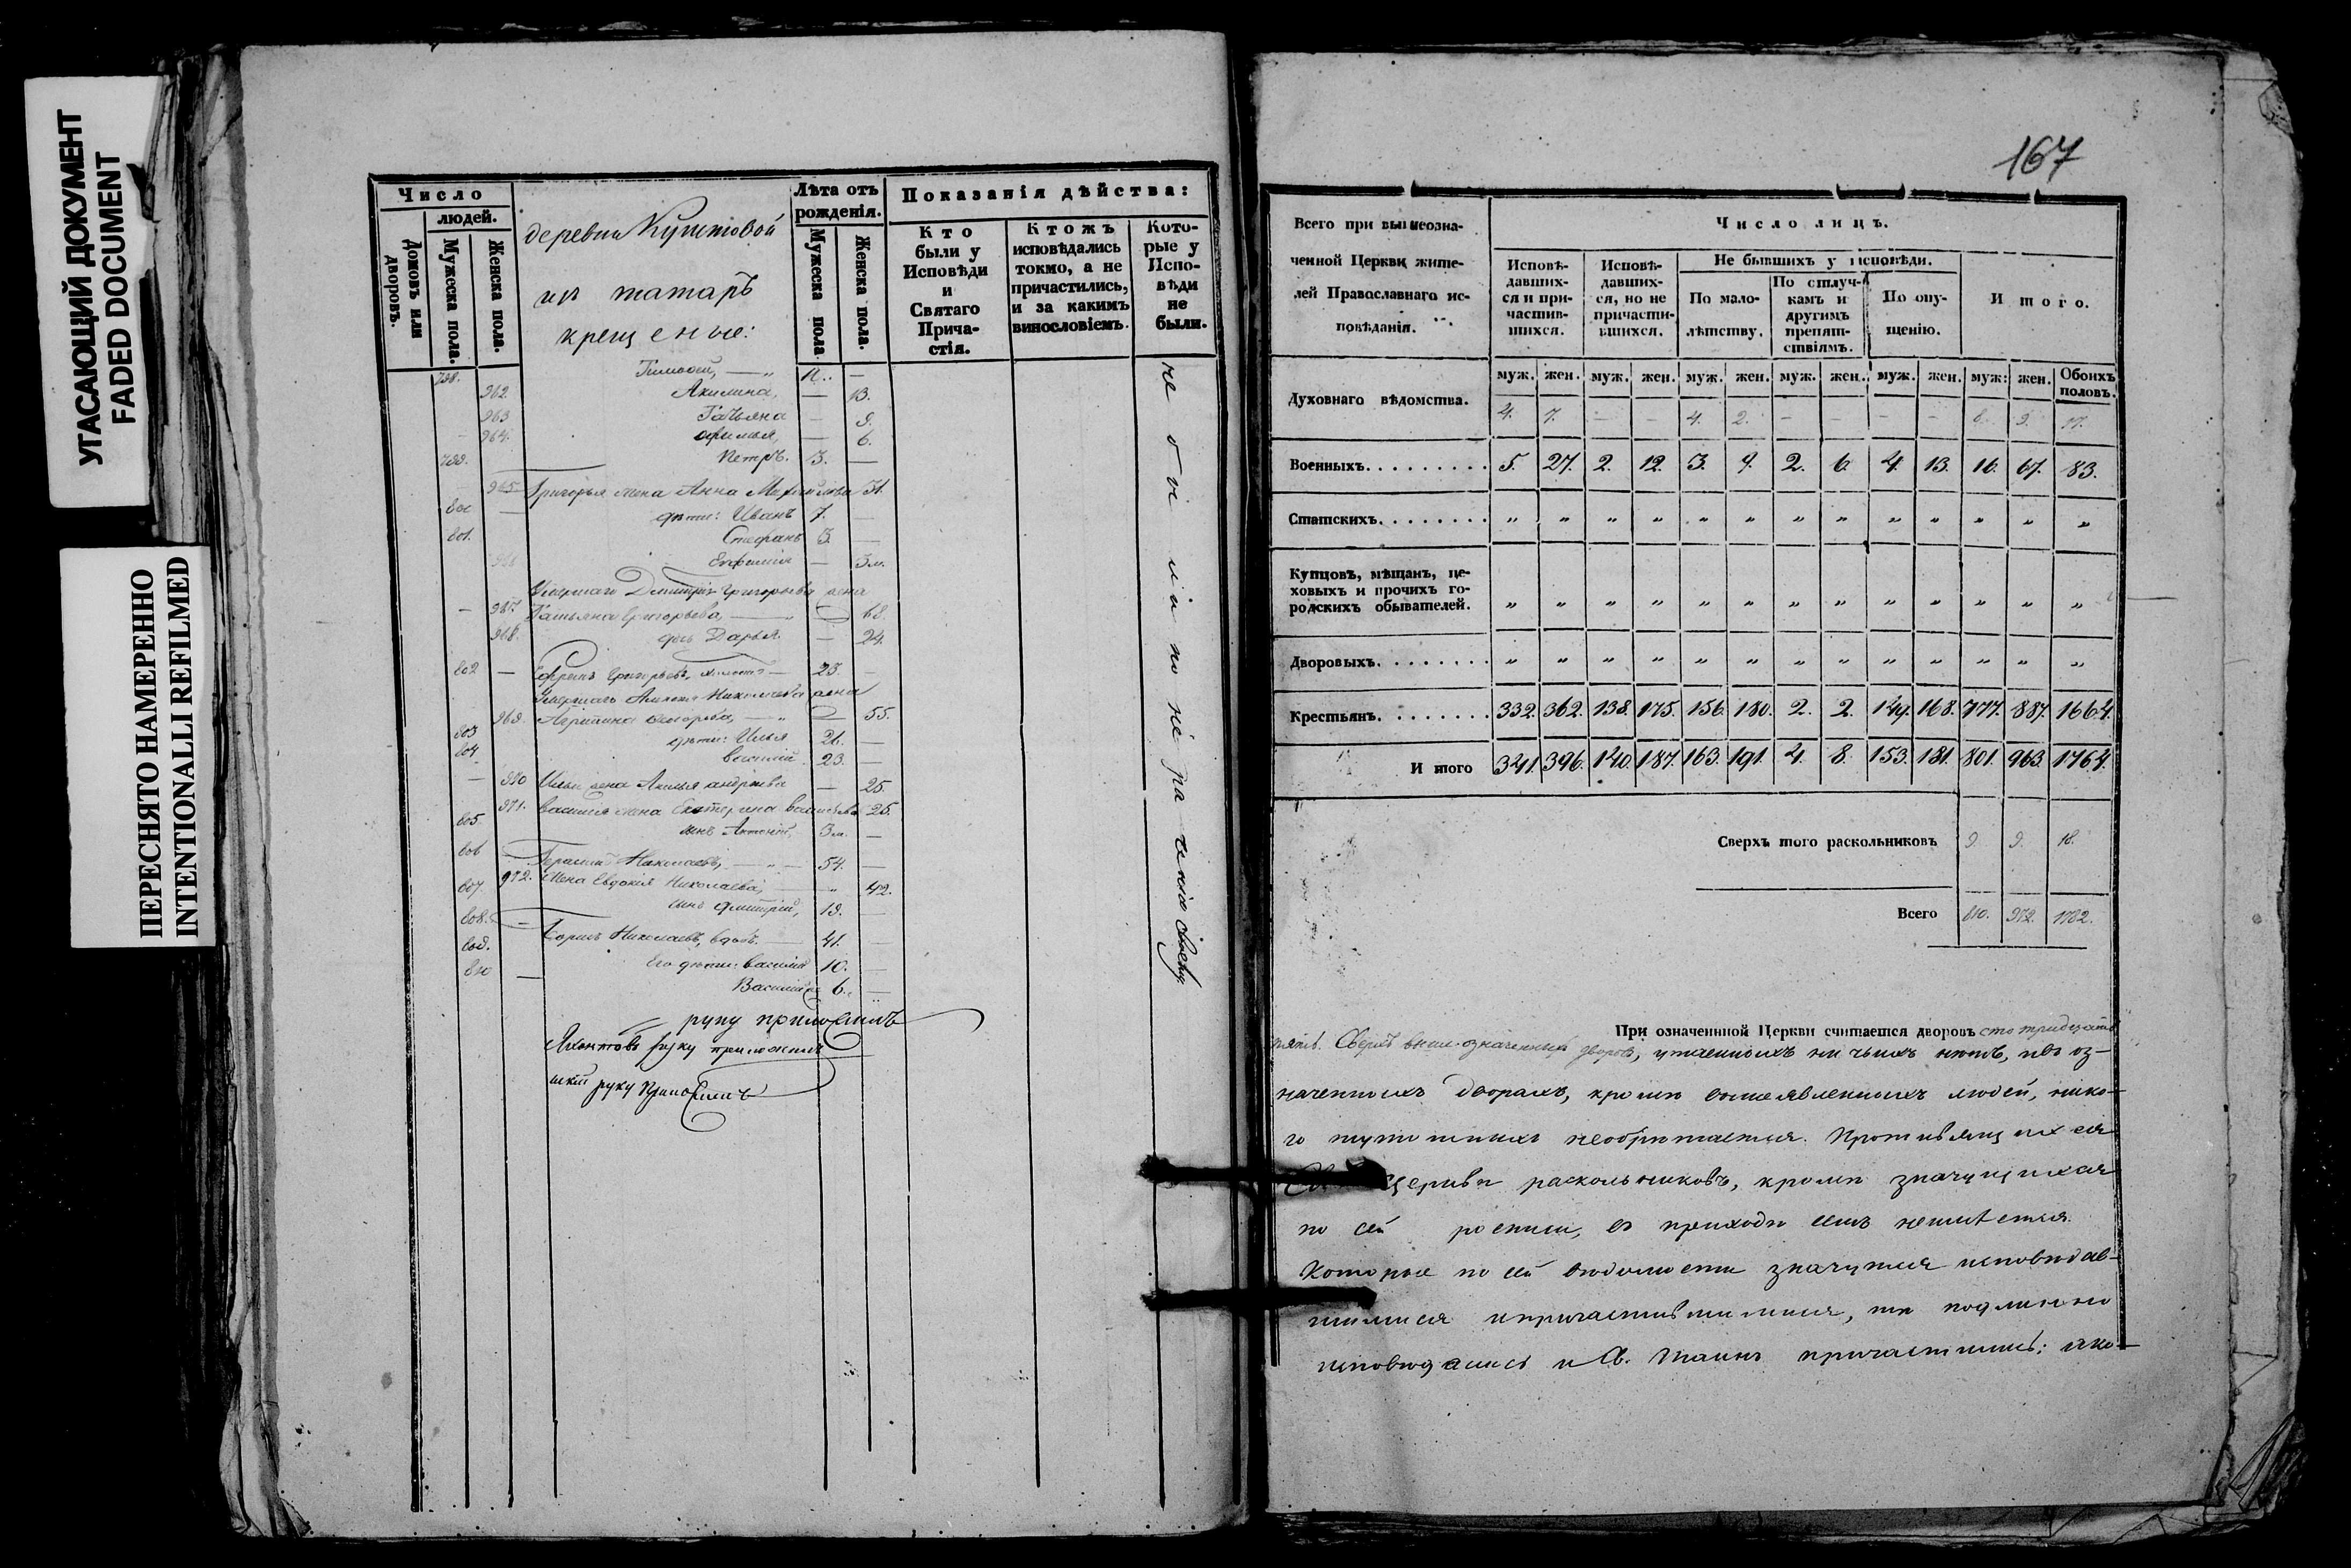 УГАСАЮЩИЙ ДОКУМЕНТ
FADED DOCUMENT
ПЕРЕСНЯТО НАМЕРЕННО
INTENTIONALLI REFILMED
Число
людей.
Домовъ или дворовъ.
Мужеска пола.
Женска пола.
деревни Куштовой
изъ татаръ
крещеные:
Лѣта отъ
рожденія.
Мужеска пола
Женска пола.
Показанія дѣйства:
Кто
были у
Исповѣди
и
Святаго
Прича-
стія.
Ктожъ
исповѣдались
токмо, а не
причастились,
и за какимъ
винословіемъ.
Кото-
рые у
Испо-
вѣди
не
были.
798. — „ —
962. Акилина, — 13.
963 Татьяна — 9.
964. — 6.
799. Петръ. 3. —
965 Григорья жена Анна 31.
800 — дѣти: Иванъ 7. —
801. Стефанъ 3. —
Евфимія — 3 м.
Умершаго Димитрія Григорьева жена
— 967. Татьяна Григорьева, — 68.
968. дочь Дарья — 24.
802 — Ефремъ Григорьевъ, 25. —
Николаева жена
969. — „ — 55.
803 дѣти: Илья 26. —
804 Василій 23. —
— 970 Ильи жена — 25
971. Василія жена Екатерина Васильева 25.
805 сынъ 3 м. —
806 Николаевъ, — „ — 54. —
972. Жена Евдокія Николаева, — „ 42.
807 сынъ Димитрій, 19. —
808. — Николаевъ, вдовъ. — 41. —
809. Его дѣти: Василій 10. —
810 — Василій 6. —
руку приложилъ
руку приложилъ
руку приложилъ
167
Всего при вышеозна-
ченной Церкви жите-
лей Православнаго ис-
повѣданія.
Число лицъ.
Исповѣ-
давших-
ся и при-
частив-
шихся.
Исповѣ-
давших-
ся, но не
причасти-
вшихся.
Не бывшихъ у исповѣди.
По мало-
лѣтству.
По отлуч-
камъ и
другимъ
препят-
ствіямъ.
По опу-
щенію.
Итого.
муж. жен. муж. жен. муж. жен. муж. жен. муж. жен. муж: жен. Обоихъ
половъ.
Духовнаго вѣдомства. 4. 7. — — 4. 2. — — — — 8. 9. 17.
Военныхъ. . . . . . . . . 5. 27. 2. 12. 3. 9. 2. 6. 4. 13. 16. 67. 83.
Статскихъ. . . . . . . . „ „ „ „ „ „ „ „ „ „ „ „ „
Купцовъ, мѣщанъ, це-
ховыхъ и прочихъ го-
родскихъ обывателей. „ „ „ „ „ „ „ „ „ „ „ „ „
Дворовыхъ. . . . . . . . „ „ „ „ „ „ „ „ „ „ „ „ „
Крестьянъ. . . . . . . . 332. 362. 138. 175. 156. 180. 2. 2. 149. 168. 777. 887. 1664.
И того 341. 396. 140. 187. 163. 191. 4. 8. 153. 181. 801. 963. 1764.
Сверхъ того раскольниковъ 9. 9. 18.
Всего 810. 972. 1782.
При означенной Церкви считается дворовъ сто тридцать
пять. Сверхъ вышеозначенныхъ дворовъ, утаенныхъ ни чьихъ нѣтъ, въ оз-
наченныхъ дворахъ, кромѣ вышеявленныхъ людей, нико-
го необрѣтается. Противящихся
Церкви раскольниковъ, кромѣ значущихся
по сей росписи, въ приходѣ семъ неимѣется.
Которые по сей вѣдомости значутся исповѣдав-
шимися и причастившимися, тѣ подлинно
исповѣдались и Св. Таинъ причастились; яко-
не бы и по не ра че нію своему